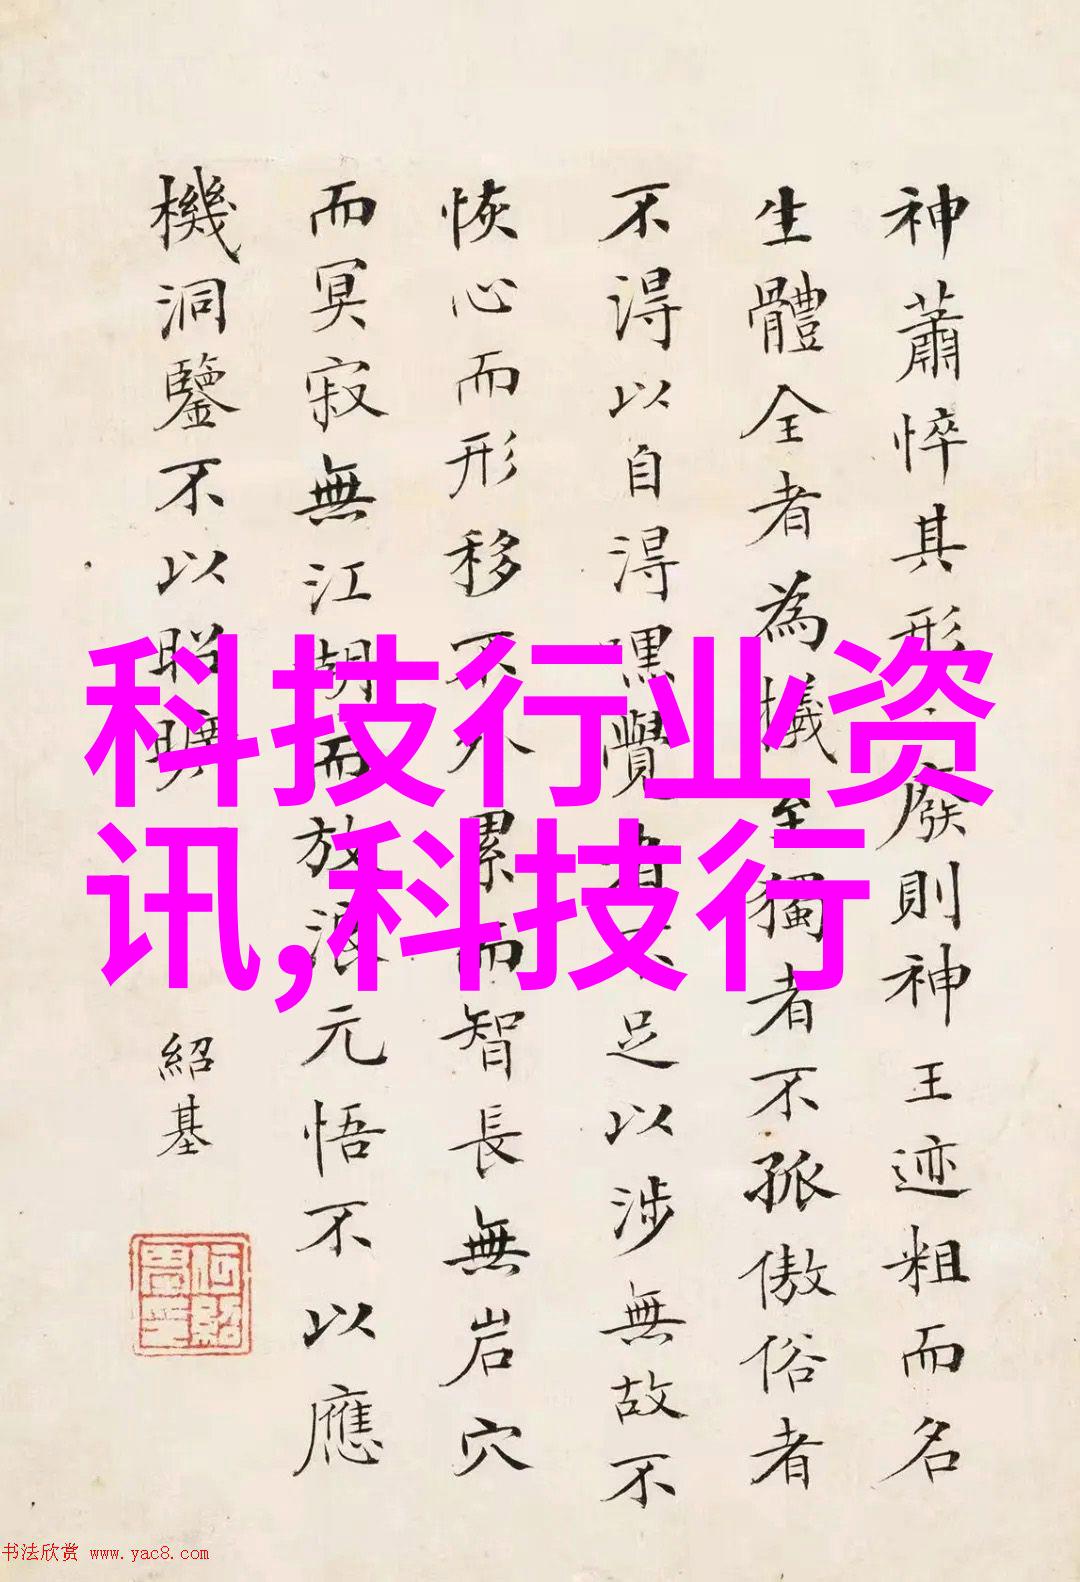 神蕭悴其形廢則神王迹粗而名
生體全者為犧至獨者不孤傲俗者
不得以自得嘿覺者不足以涉無故不
恢心而形移不外累而智長無岩穴
而冥寂無江胡而放浪元悟不以應
機洞鑒不以昭曠
紹基
科技行业资
讯,科技行
书法欣赏 www.yac8.com